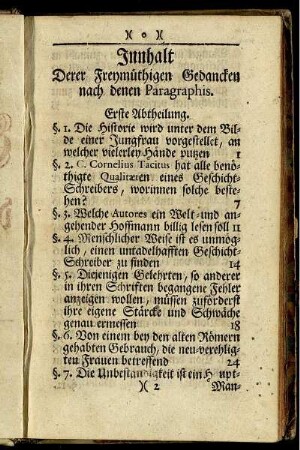 )( o )(
Innhalt
Derer Freymüthigen Gedancken
nach denen Paragraphis.
Erste Abtheilung.
§. 1. Die Historie wird unter dem Bil-
de einer Jungfrau vorgestellet, an
welcher vielerley Hände putzen 1
§. 2. C. Cornelius Tacitus hat alle benö-
thigte Qualitæten eines Geschicht-
Schreibers, worinnen solche beste-
hen? 7
§. 3. Welche Autores ein Welt- und an-
gehender Hoffmann billig lesen soll 11
§. 4. Menschlicher Weise ist es unmög-
lich, einen untadelhafften Geschicht-
Schreiber zu finden 14
§. 5. Diejenigen Gelehrten, so anderer
in ihren Schriften begangene Fehler
anzeigen wollen, müssen zuförderst
ihre eigene Stärcke und Schwäche
genau ermessen 18
§. 6. Von einem bey den alten Römern
gehabten Gebrauch, die neu-verehlig-
ten Frauen betreffend 24
§. 7. Die Unbeständigkeit ist ein Haupt-
)( 2 Man-